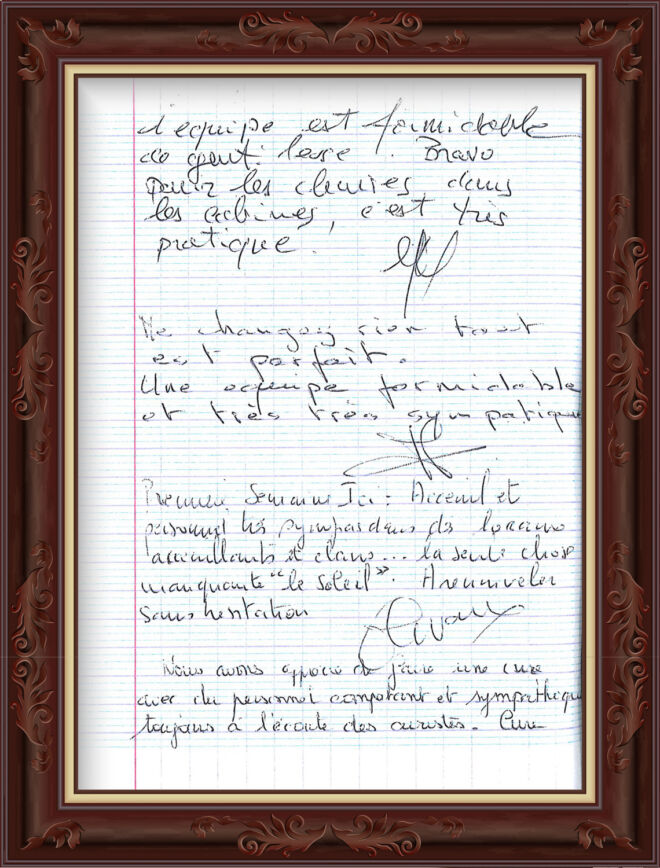 L'equipe est formidable
de gentillesse. Bravo
pour les chaises dans
les cabines, c'est très
pratique.
Ne changez rien tout
est parfait.
Une equipe formidable
et très très sympatique
Première Semaine Ici : Acceuil et
personnel très sympas dans des locaux
acceuillants et clairs... la seule chose
manquante "le soleil". A renouveler
sans hésitation
Nous avons apprécié de faire une cure
avec du personnel compétant et sympathique
toujours à l'écoute des curistes. Cure